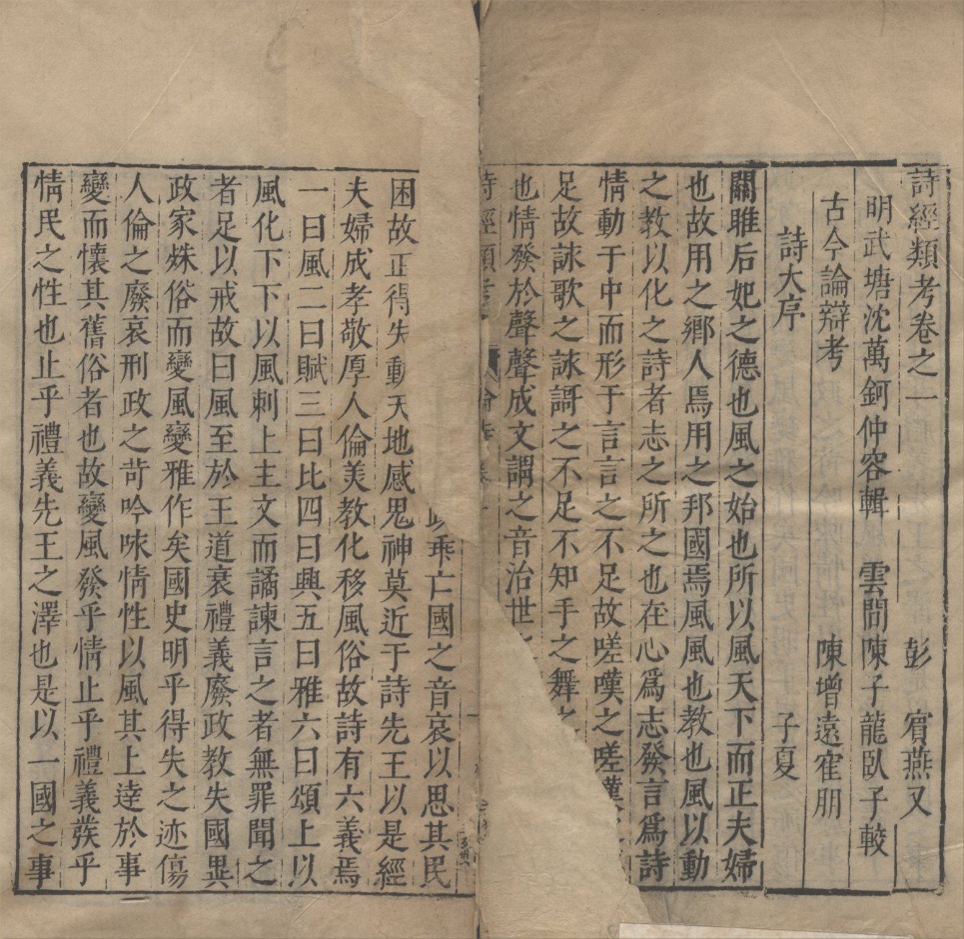 詩經類考卷之一 彭 賓燕又
明武塘沈萬鈳仲容輯 雲間陳子龍臥子較
古今論辯考 陳增遠寉朋
詩大序 子夏
關雎后妃之德也風之始也所以風天下而正夫婦
也故用之鄉人焉用之邦國焉風風也教也風以動
之教以化之詩者志之所之也在心爲志發言爲詩
情動于中而形于言言之不足故嗟嘆之嗟嘆
足故詠歌之詠謌之不足不知手之舞之
也情發於聲聲成文謂之音治世
詩經類考
乖亡國之音哀以思其民
困故正得失動天地感鬼神莫近于詩先王以是經
夫婦成孝敬厚人倫美教化移風俗故詩有六義焉
一曰風二曰賦三曰比四曰興五曰雅六曰頌上以
風化下下以風刺上主文而譎諫言之者無罪聞之
者足以戒故曰風至於王道衰禮義廢政教失國異
政家殊俗而變風變雅作矣國史明乎得失之迹傷
人倫之廢哀刑政之苛吟咏情性以風其上達於事
變而懷其舊俗者也故變風發乎情止乎禮義發乎
情民之性也止乎禮義先王之澤也是以一國之事